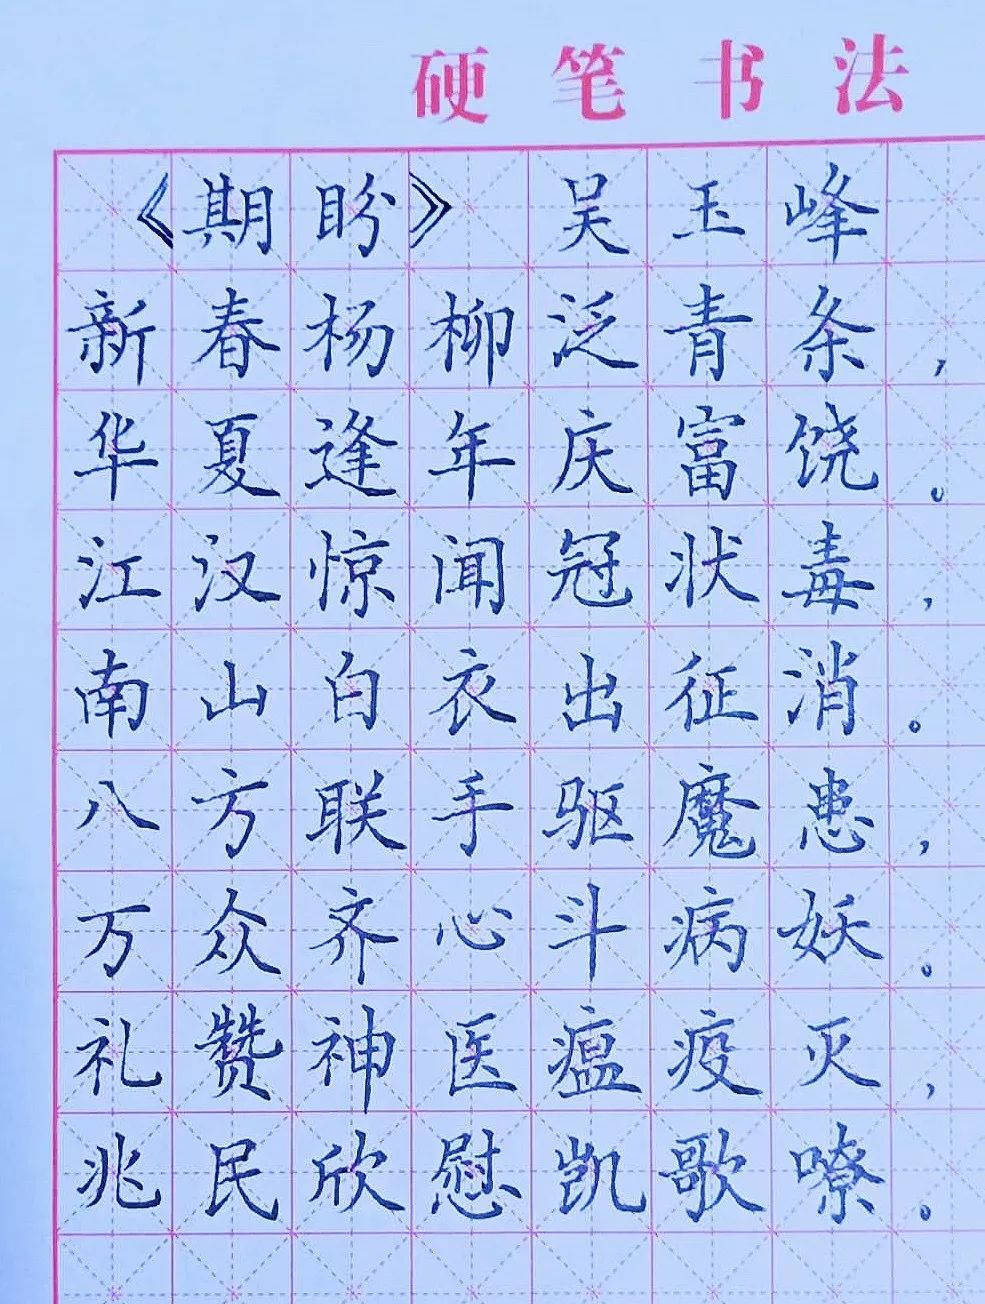 硬笔书法
《期盼》 吴玉峰
新春杨柳泛青条，
华夏逢年庆富饶。
江汉惊闻冠状毒，
南山白衣出征消。
八方联手驱魔患，
万众齐心斗病妖。
礼赞神医瘟疫灭，
兆民欣慰凯歌嘹。